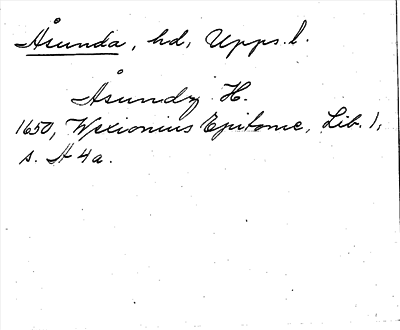 Åsunda, hd, Upps. l.
Åsundz H.
1650, Wexionius Epitome, Lib. 1,
s. A 4a.